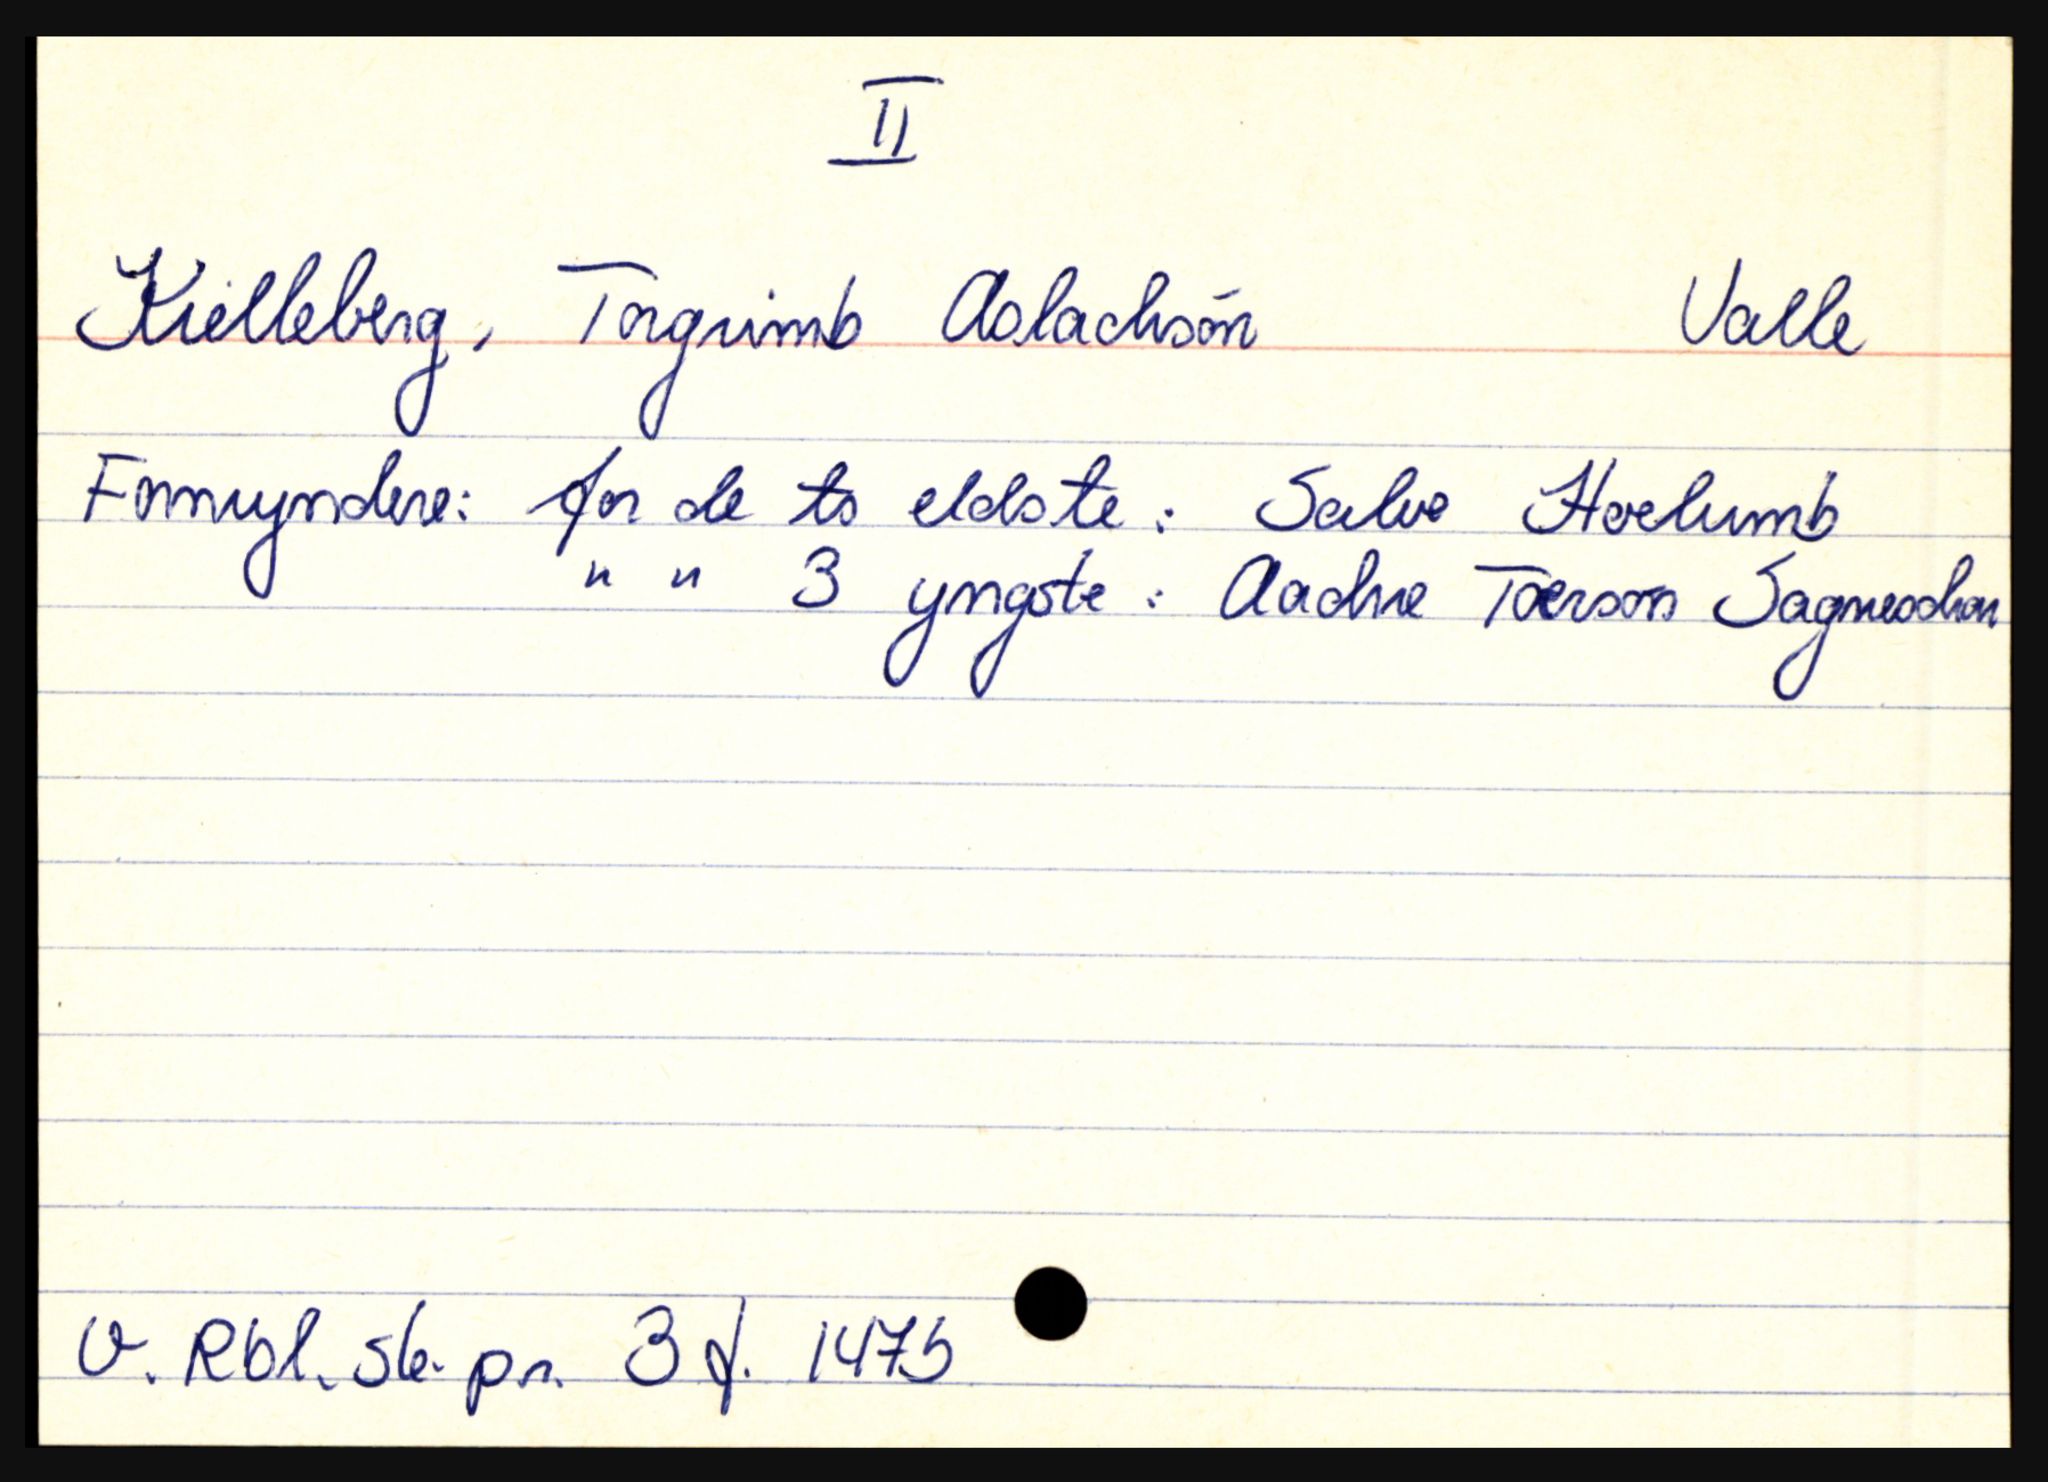 II
Kielleberg, Torgrimb Aslachsón Valle
Formyndere: for de to eldste: Salve Hoelumb
" " 3 yngste: Aachie Toerson
V. Rbl. sk. pr. 3 f. 147b